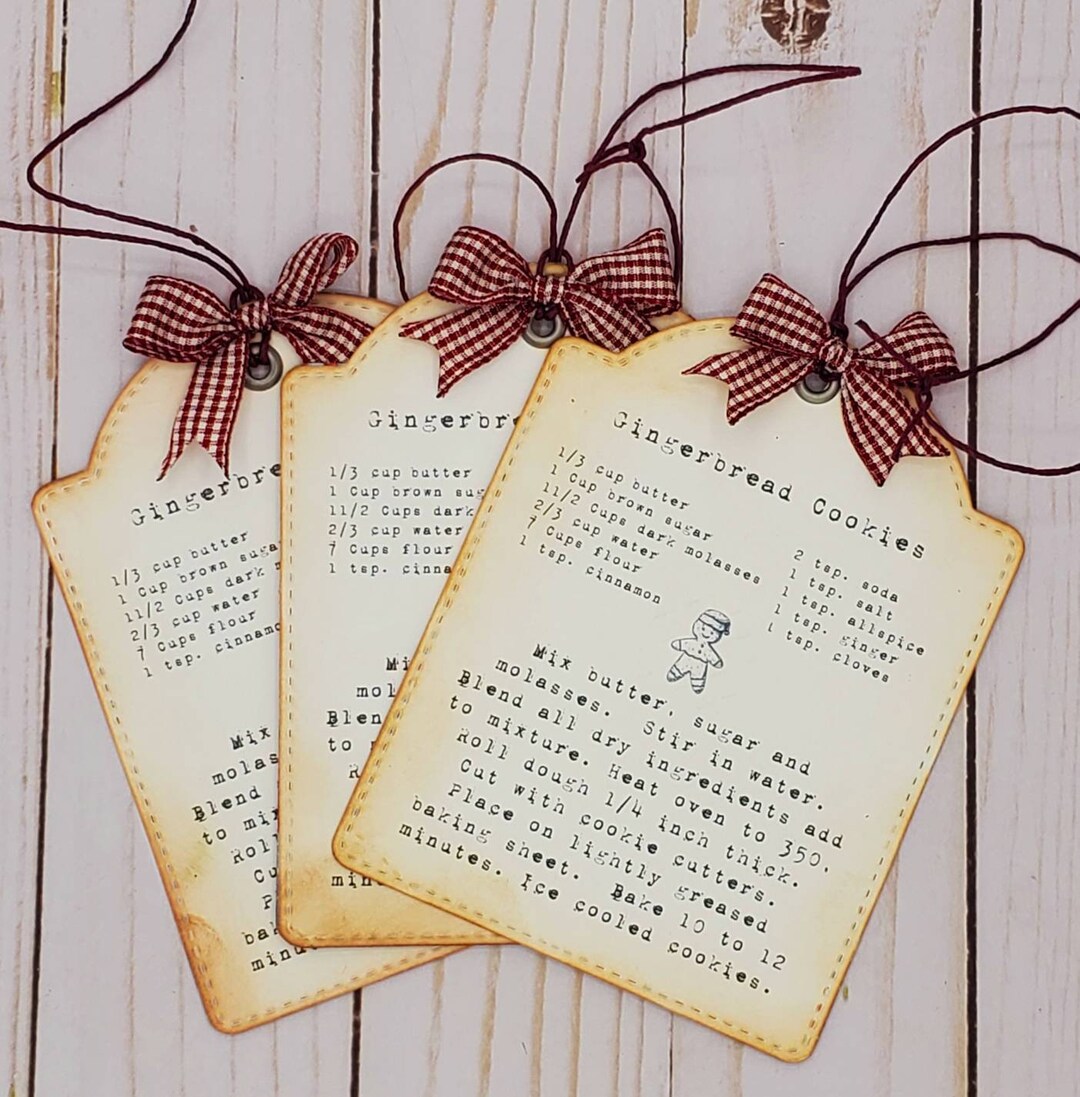 Gingerbre
1/3 cup butter
1 Cup brown suga
11/2 Cups dark m
2/3 cup water
7 Cups flour
1 tsp. cinnamo
Mix
molas
Blend
to mix
Rol
Cu
P
bak
minu
Gingerbre
1/3 cup butter
1 Cup brown sug
11/2 Cups dark
2/3 cup water
7 Cups flour
1 tsp. cinna
Mi
mol
Blen
to
R
min
Gingerbread Cookies
1/3 cup butter
1 Cup brown sugar
11/2 Cups dark molasses
2/3 cup water
7 Cups flour
1 tsp. cinnamon
2 tsp. soda
1 tsp. salt
1 tsp. allspice
1 tsp. ginger
1 tsp. cloves
Mix butter, sugar and
molasses. Stir in water.
Blend all dry ingredients add
to mixture. Heat oven to 350.
Roll dough 1/4 inch thick.
Cut with cookie cutters.
Place on lightly greased
baking sheet. Bake 10 to 12
minutes. Ice cooled cookies.